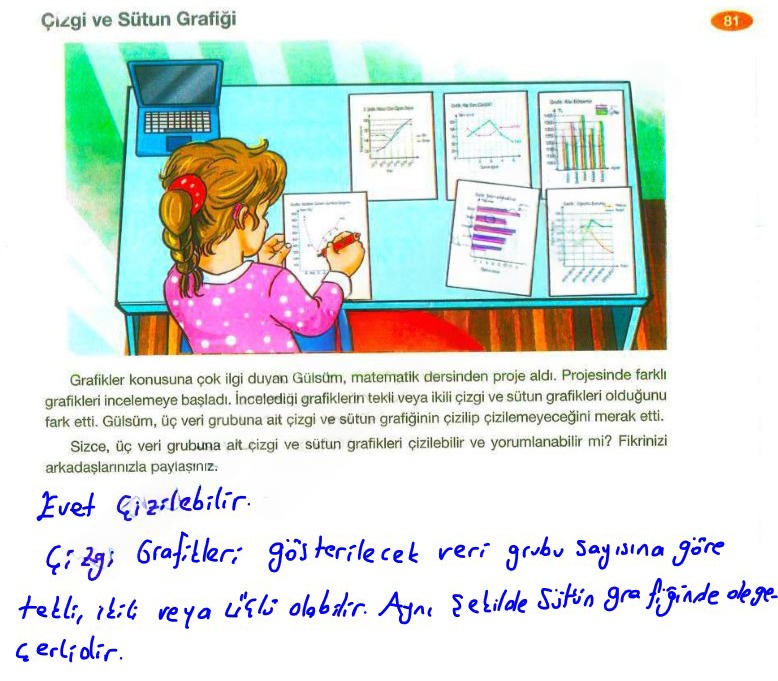 Çizgi ve Sütun Grafiği
81
Grafikler konusuna çok ilgi duyan Gülsüm, matematik dersinden proje aldı. Projesinde farklı
grafikleri incelemeye başladı. İncelediği grafiklerin tekli veya ikili çizgi ve sütun grafikleri olduğunu
fark etti. Gülsüm, üç veri grubuna ait çizgi ve sütun grafiğinin çizilip çizilemeyeceğini merak etti.
Sizce, üç veri grubuna ait çizgi ve sütun grafikleri çizilebilir ve yorumlanabilir mi? Fikrinizi
arkadaşlarınızla paylaşınız.
Evet çizilebilir.
Çizgi Grafikleri gösterilecek veri grubu sayısına göre
tekli, ikili veya üçlü olabilir. Aynı şekilde sütun grafiğinde de ge-
çerlidir.